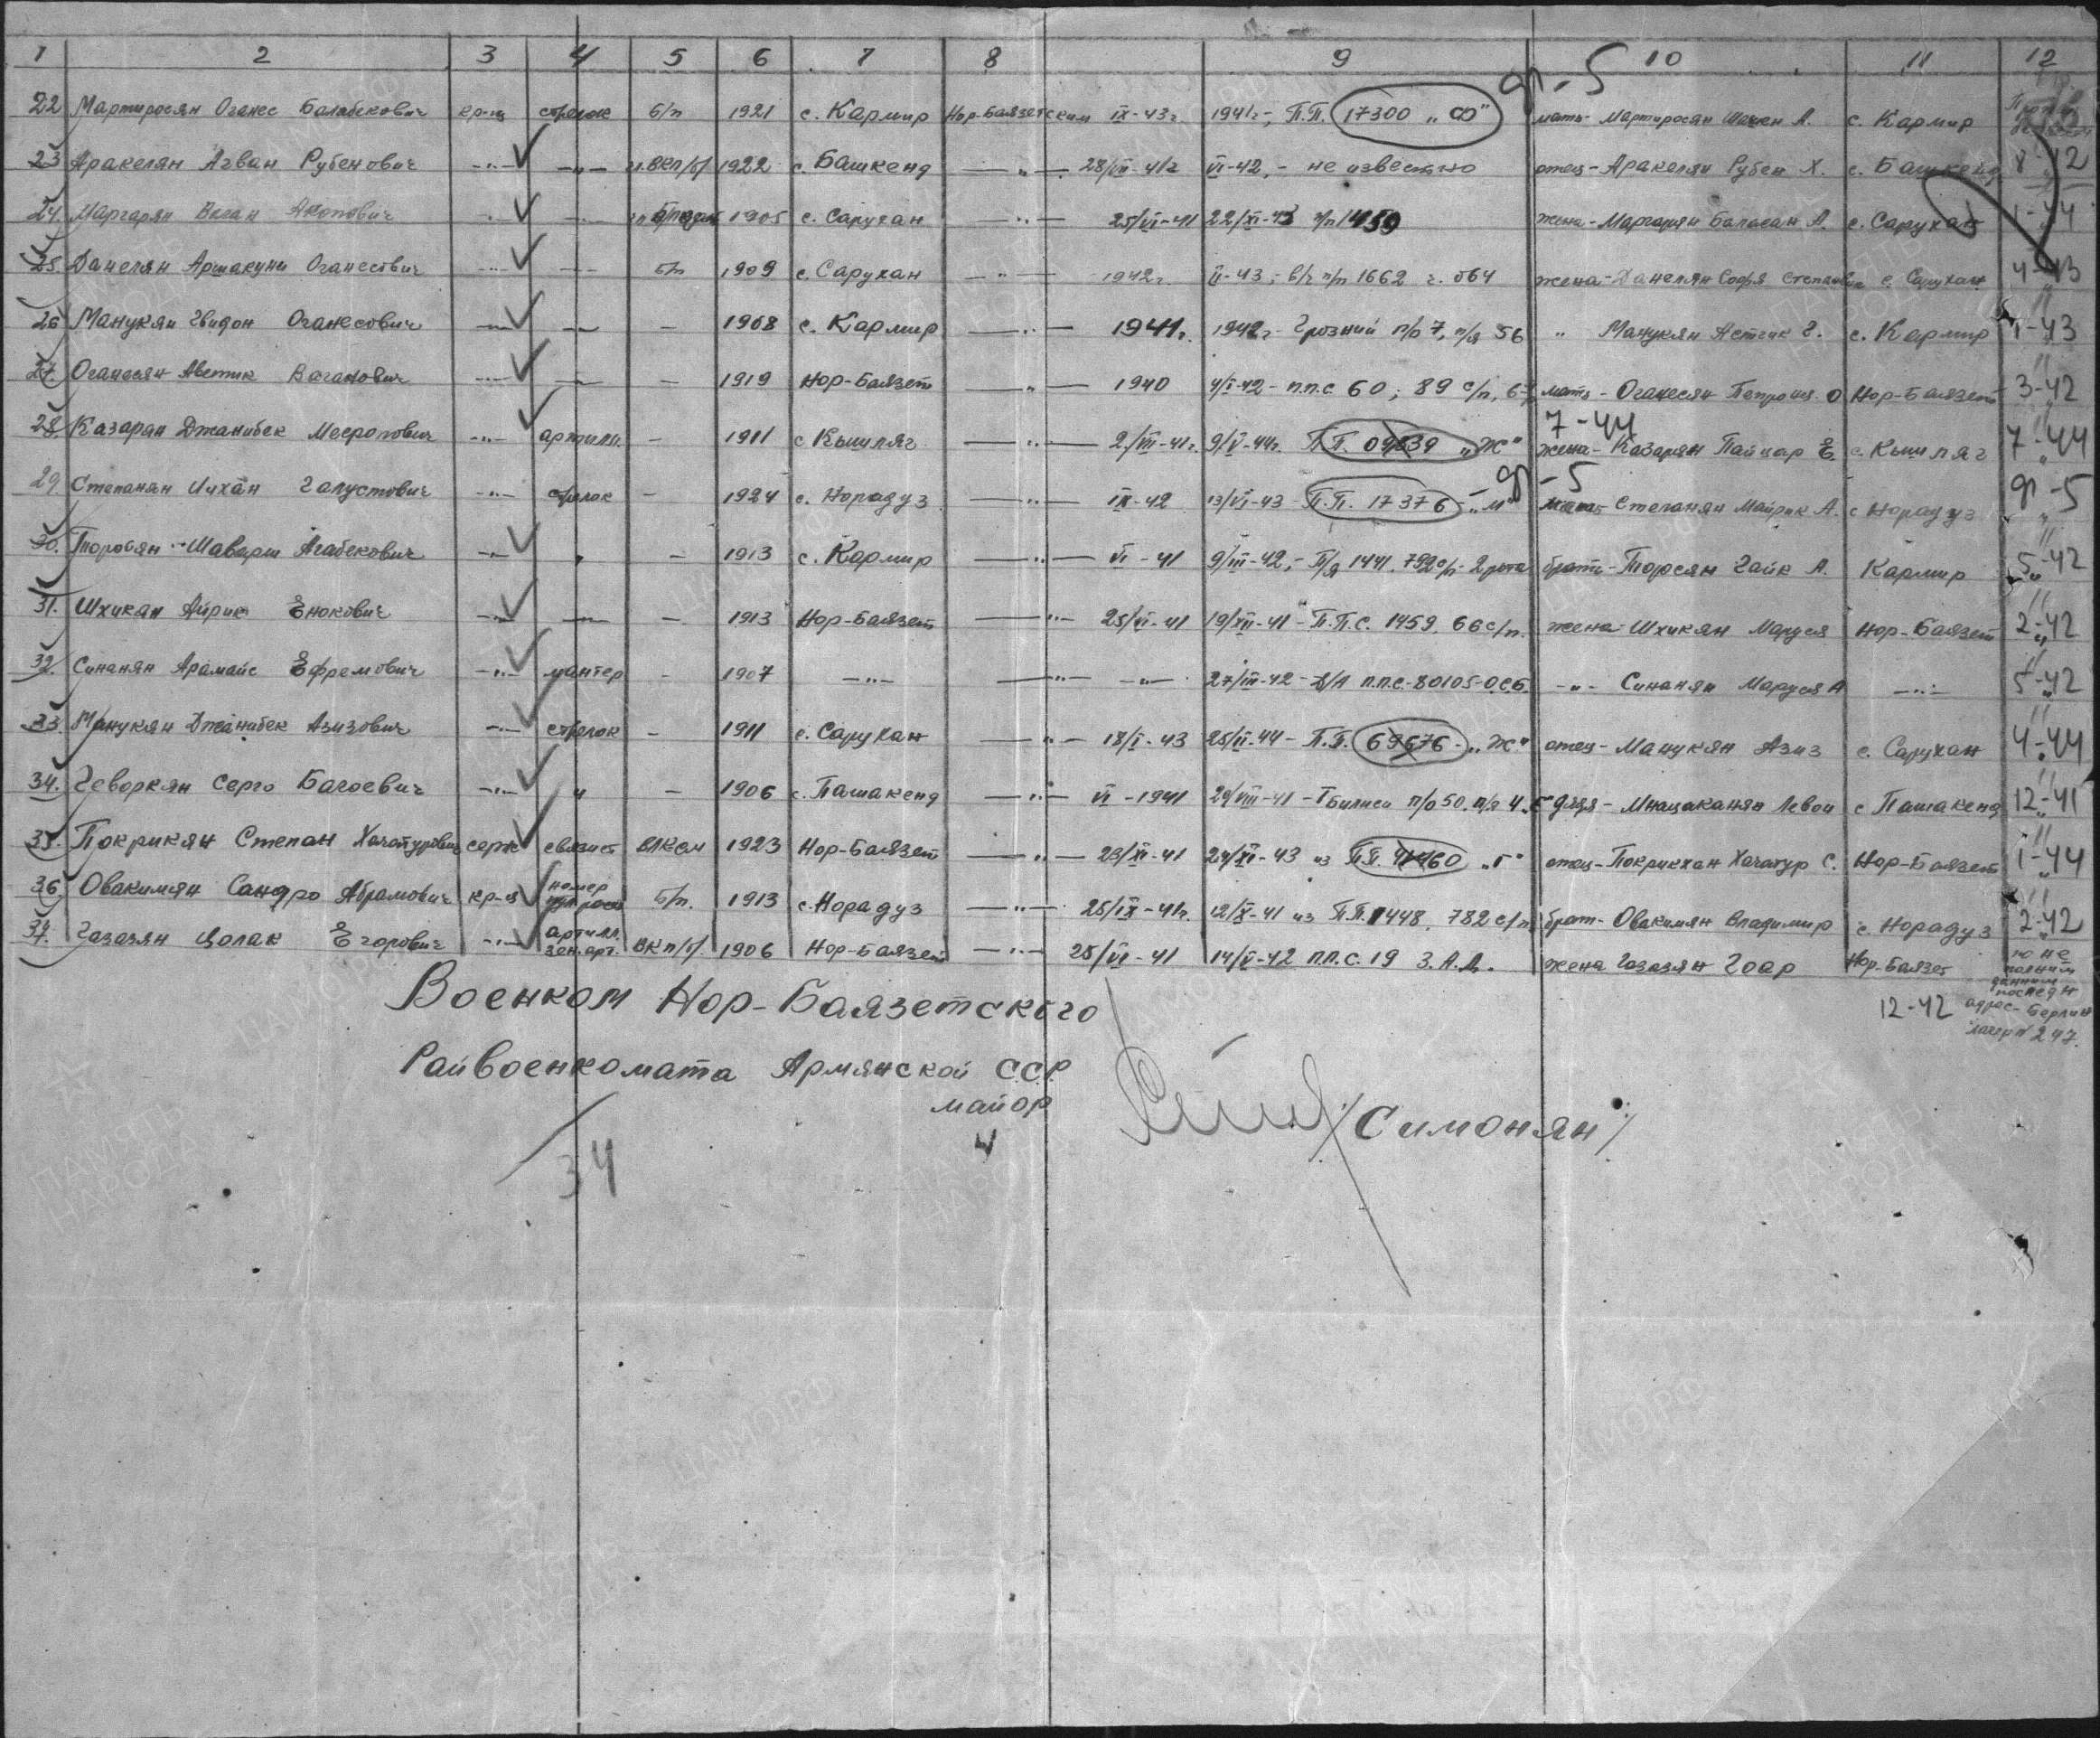 1 2 3 4 5 6 7 8 9 10 11 12
др-5
22 Мартиросян Оганес Балабекович кр-ц стрелок б/п 1921 с. Кармир Нор-Баязетским IX-43г. 1941г-, П.П. 17300 „Ф" мать- Мартиросян Шогкен А. с. Кармир
23 Аракелян Агван Рубенович -"- -"- чл.ВКП/б/ 1922 с. Башкенд -"- 28/VII-41г VI-42,- не известно отец- Аракелян Рубен Х. с. Башкенд 8-42
24. Маргарян Ваган Акопович -"- -"- 1905 с. Сарухан -"- 25/VI-41 22/XI-43 п/п 1450 жена- Маргарян Баласан А. с. Сарухан 1-44
25. Данелян Аршакуни Оганесович -"- -"- б/п 1909 с. Сарухан -"- 1942г. II-43,- в/ч п/п 1662 ч. 064 жена- Данелян Софя Степановна с. Сарухан 4-43
26 Манукян Гвидон Оганесович -"- -"- - 1908 с. Кармир -"- 1941г. 1942г- Грозний п/о 7, п/я 56 " Манукян Астгик Г. с. Кармир 1-43
27. Оганесян Аветик Ваганович -"- -"- - 1919 Нор-Баязет -"- 1940 4/I-42- п.п.с 60; 89 с/п, мать- Оганесян Петрония О Нор-Баязет 3-42
7-44
28. Казарян Джанибек Месропович -"- артилл. - 1911 с Кышляг -"- 2/VII-41г. 9/V-44г. П.П. 09639 „Ж" жена- Казарян Пайцар Е. с. Кышляг 7-44
др-5
29 Степанян Ишхан Галустович -"- стрелок - 1924 с. Норадуз -"- IX-42 13/VI-43- П.П. 17376-„М" мать Степанян Майрик А. с Норадуз др-5
30. Торосян Шаварш Агабекович -"- " - 1913 с. Кармир -"- VI-41 9/III-42,- П/я 1441. 792с/п- 2 рота брат- Торосян Гайк А. Кармир 5-42
31. Шхикян Айрик Енокович -"- -"- - 1913 Нор-Баязет -"- 25/VI-41 19/XII-41- П.П.С. 1459. 66 с/п. жена- Шхикян Маруся Нор-Баязет 2-42
32. Синанян Арамаис Ефремович -"- минтер - 1907 -"- -"- -"- 27/III-42- Д/А п.п.с-80105-ОСБ -"- Синанян Маруся А -"- 5-42
33. Манукян Джанибек Азизович -"- стрелок - 1911 с. Сарухан -"- 18/I-43 25/II-44- П.П. 69676-„Ж" отец- Манукян Азиз с. Сарухан 4-44
34. Геворкян Серго Багоевич -"- " - 1906 с. Пашакенд -"- VI-1941 29/VIII-41- Тбилиси п/о 50. п/я 4. дядя- Мнацаканян Левон с Пашакенд 12-41
35. Покрикян Степан Хачатурович серж связист ВЛКСМ 1923 Нор-Баязет -"- 23/XI-41 24/XI-43 из П.П. 41460 „Г" отец- Покрикхан Хачатур С. Нор-Баязет 1-44
36 Овакимян Сандро Абрамович кр-ц номер б/п. 1913 с. Норадуз -"- 25/IX-41г. 12/X-41 из П.П. 1448. 782 с/п брат- Овакимян Владимир с. Норадуз 2-42
37. Газазян Цолак Егорович -"- артилл. зен.арт. ВКП/б/. 1906 Нор-Баязет -"- 25/VI-41 14/V-42 п.п.с. 19 З.А.Д. жена Газазян Гоар Нор-Баязет
по не полным данным последн адрес- Берлин лагерь 247.
12-42
Военком Нор-Баязетского
Райвоенкомата Армянской ССР
майор
/Симонян/
34